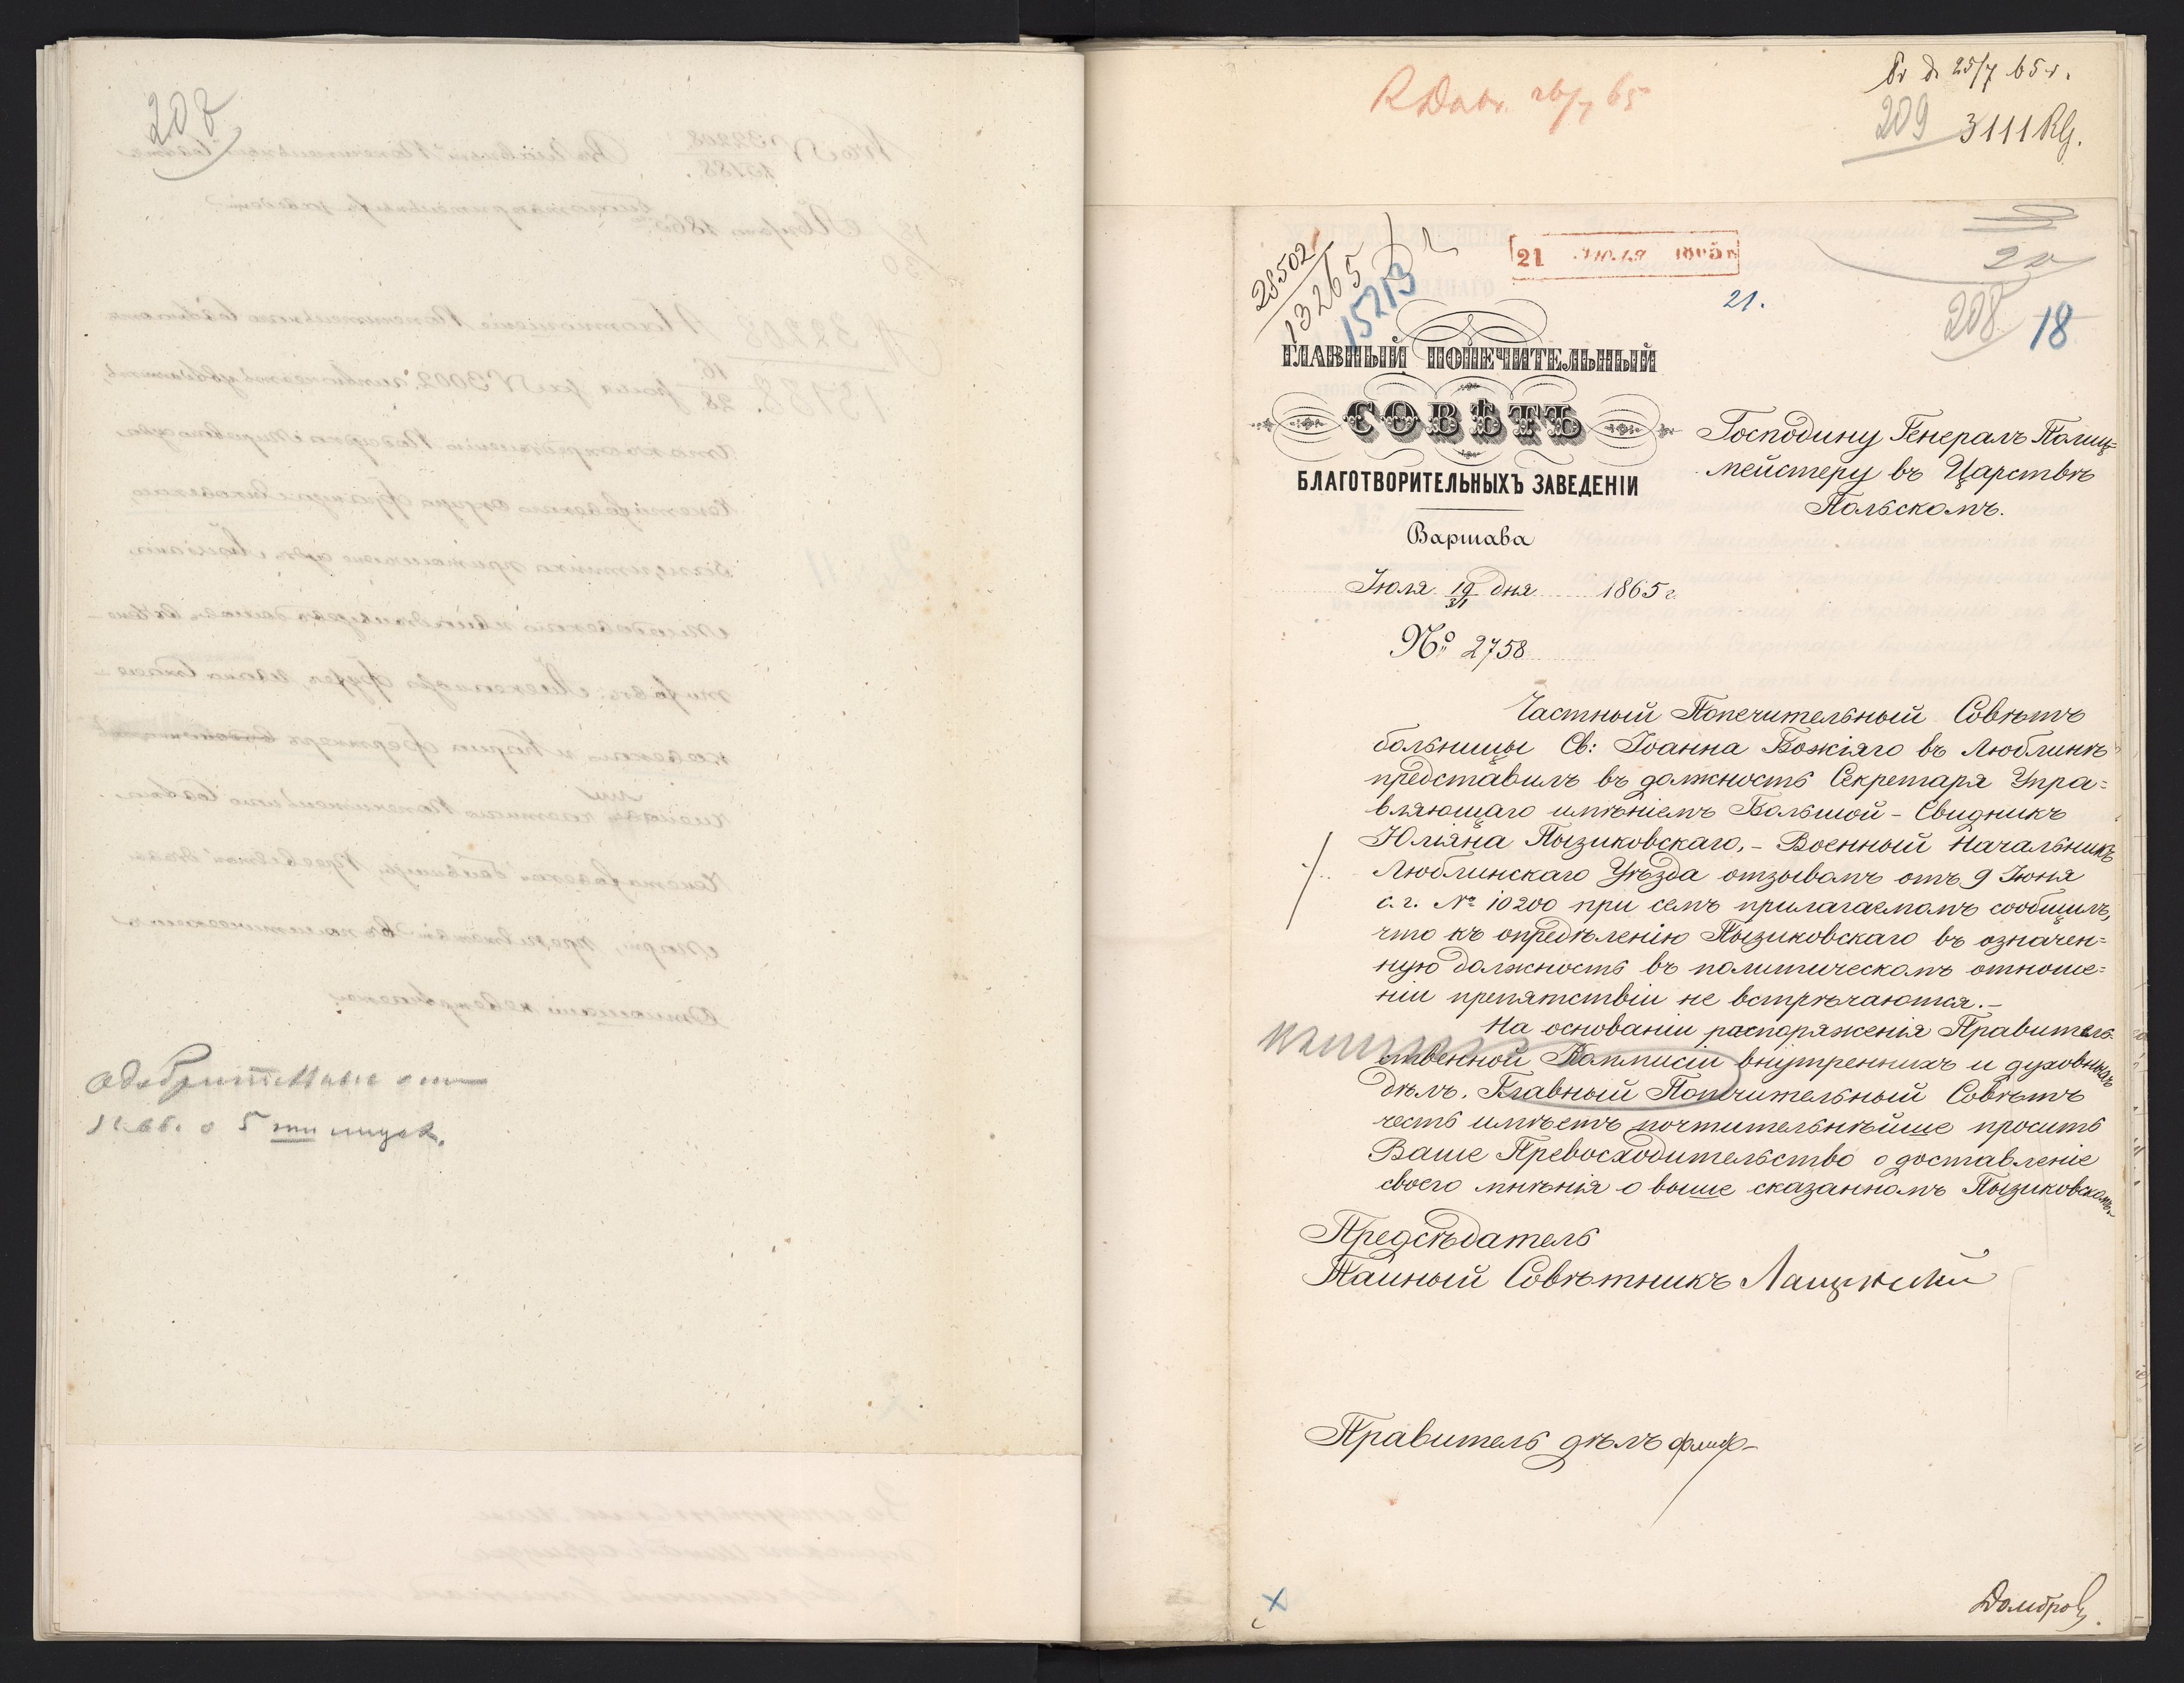 208
R Dabr. 26/7 65
25/7 65 r.
209 3111 RG.
28502
13265
15213
21 ІЮЛЯ 1865 г
21.
208 18
ГЛАВНЫЙ ПОПЕЧИТЕЛЬНЫЙ
СОВѢТЪ
БЛАГОТВОРИТЕЛЬНЫХЪ ЗАВЕДЕНІИ
Варшава
Іюля 19/31 дня 1865 г.
№ 2758
Господину Генералъ Полиц=
мейстеру въ Царствѣ
Польскомъ.
Частный Попечительный Совѣтъ
больницы Св: Іоанна Божіяго въ Люблинѣ
представилъ въ должность Секретаря Упра=
вляющаго имѣніемъ Большой - Свидникъ
Юліяна Пызиковскаго, - Военный Начальникъ
Люблинскаго Уѣзда отзывомъ отъ 9 Іюня
с. г. № 10200 при семъ прилагаемомъ сообщилъ,
что къ опредѣленію Пызиковскаго въ означен=
ную должность въ политическомъ отноше=
ніи препятствіи не встрѣчаются. -
На основаніи распоряженія Правитель
ственной Коммисіи внутреннихъ и духовныхъ
дѣлъ, Главный Попечительный Совѣтъ
честь имѣетъ почтительнѣйше проситъ
Ваше Превосходительство о доставленіе
своего мнѣнія о выше сказанномъ Пызиковскомъ.
Предсѣдатель
Тайный Совѣтникъ Лащинскій
Правитель дѣлъ
Домбров.